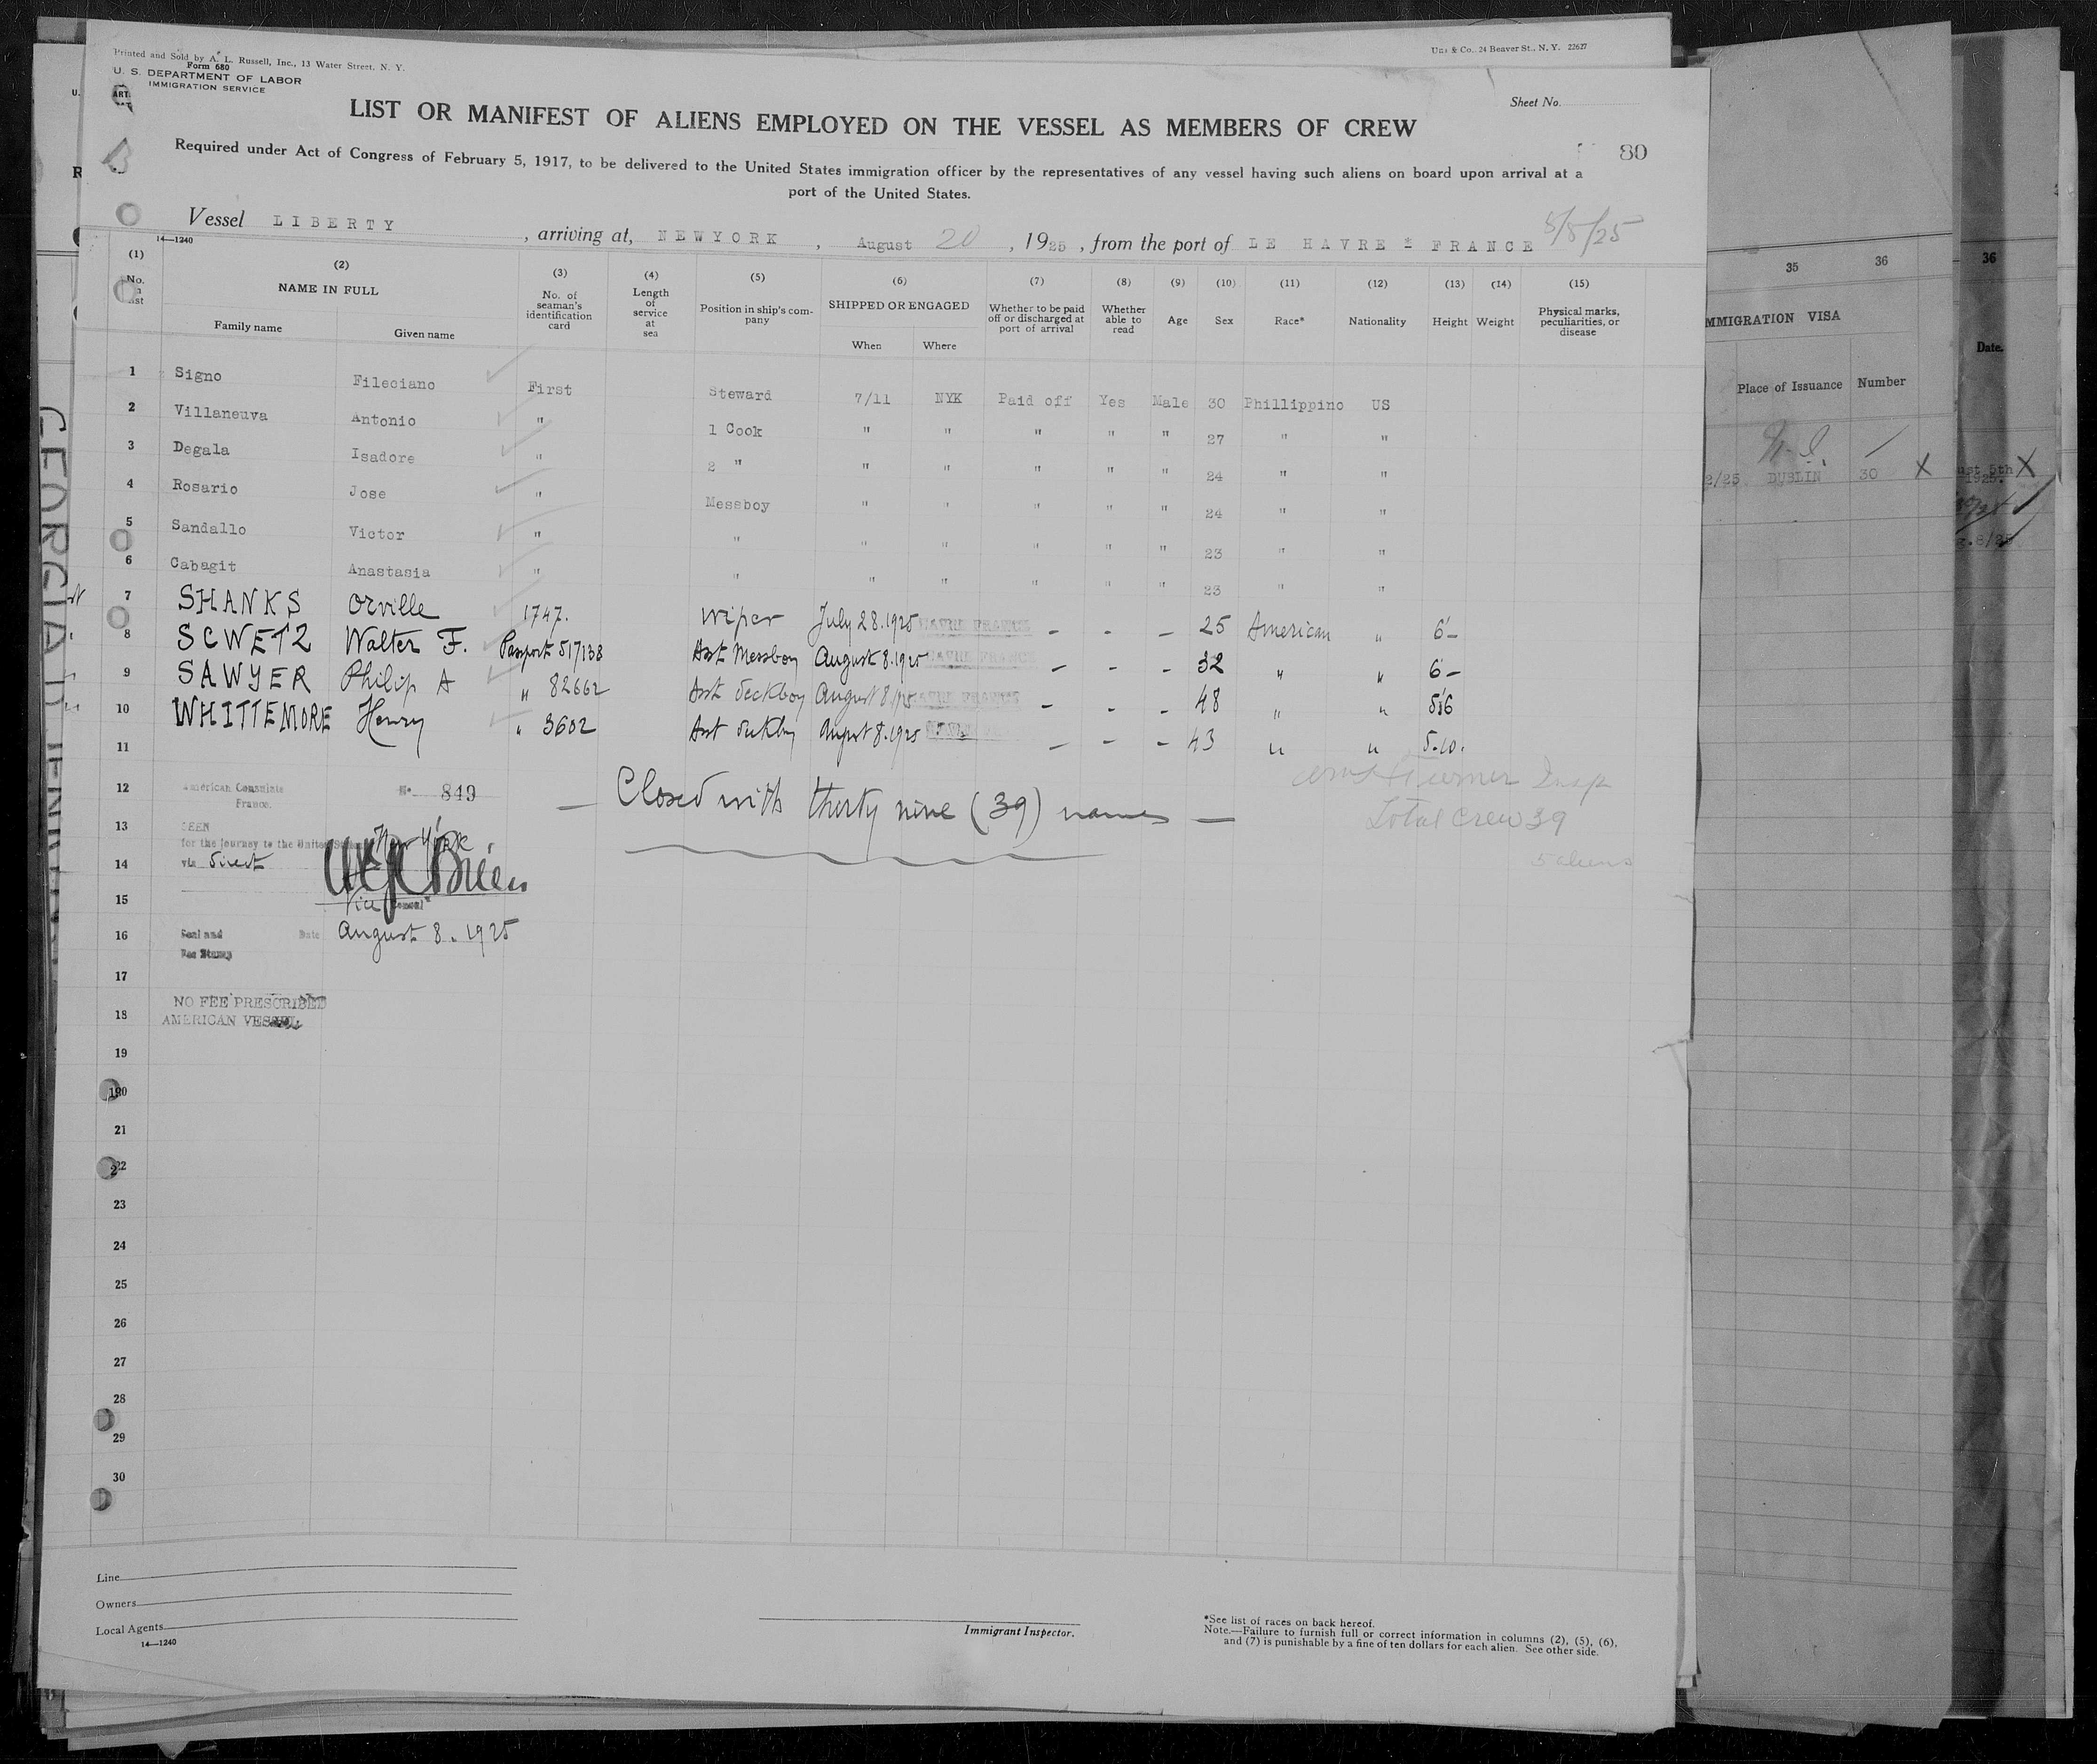 Printed and Sold by A. L. Russell, Inc., 13 Water Street, N. Y.
& Co., 24 Beaver St., N. Y. 22627
Form 680
U. S. DEPARTMENT OF LABOR
IMMIGRATION SERVICE
Sheet No.
LIST OR MANIFEST OF ALIENS EMPLOYED ON THE VESSEL AS MEMBERS OF CREW
80
Required under Act of Congress of February 5, 1917, to be delivered to the United States immigration officer by the representatives of any vessel having such aliens on board upon arrival at a
port of the United States.
8/8/25
Vessel LIBERTY, arriving at, NEWYORK, August 20, 1925, from the port of LE HAVRE * FRANCE
14—1240
(1) (2) (3) (4) (5) (6) (7) (8) (9) (10) (11) (12) (13) (14) (15)
No. NAME IN FULL No. of seaman's identification card Length of service at sea Position in ship's company SHIPPED OR ENGAGED Whether to be paid off or discharged at port of arrival Whether able to read Age Sex Race* Nationality Height Weight Physical marks, peculiarities, or disease
Family name Given name When Where
1 Signo Fileciano First Steward 7/11 NYK Paid off Yes Male 30 Phillippino US
2 Villaneuva Antonio " 1 Cook " " " " " 27 " "
3 Degala Isadore " 2 " " " " " " 24 " "
4 Rosario Jose " Messboy " " " " " 24 " "
5 Sandallo Victor " " " " " " " 23 " "
6 Cabagit Anastasia " " " " " " " 23 " "
7 SHANKS Orville 1747. Wiper July 28.1925 HAVRE FRANCE - - - 25 American " 6'-
8 SCWETZ Walter F. Passport 517138 Asst Messboy August 8.1925 HAVRE FRANCE - - - 32 " " 6'-
9 SAWYER Philip A " 82662 Asst deckboy August 8.1925 HAVRE FRANCE - - - 48 " " 5'6
10 WHITTEMORE Henry " 3602 Asst deckboy August 8.1925 - - - 43 " " 5.10.
11
12 American Consulate No. 849
France.
— Closed with thirty nine (39) names —
Turner Insp
Total Crew 39
5 aliens
13 SEEN
for the journey to the United States New York
14 via direct
15 Vice Consul
16 Seal and Date August 8. 1925
Fee Stamp
17
NO FEE PRESCRIBED
18 AMERICAN VESSEL
19
20
21
22
23
24
25
26
27
28
29
30
Line
Owners
Local Agents
14—1240
Immigrant Inspector.
*See list of races on back hereof.
Note.—Failure to furnish full or correct information in columns (2), (5), (6),
and (7) is punishable by a fine of ten dollars for each alien. See other side.
35 36
IMMIGRATION VISA
Place of Issuance Number
2/25 DUBLIN 30 X
36
Date.
5th X
1925.
GEORGIA